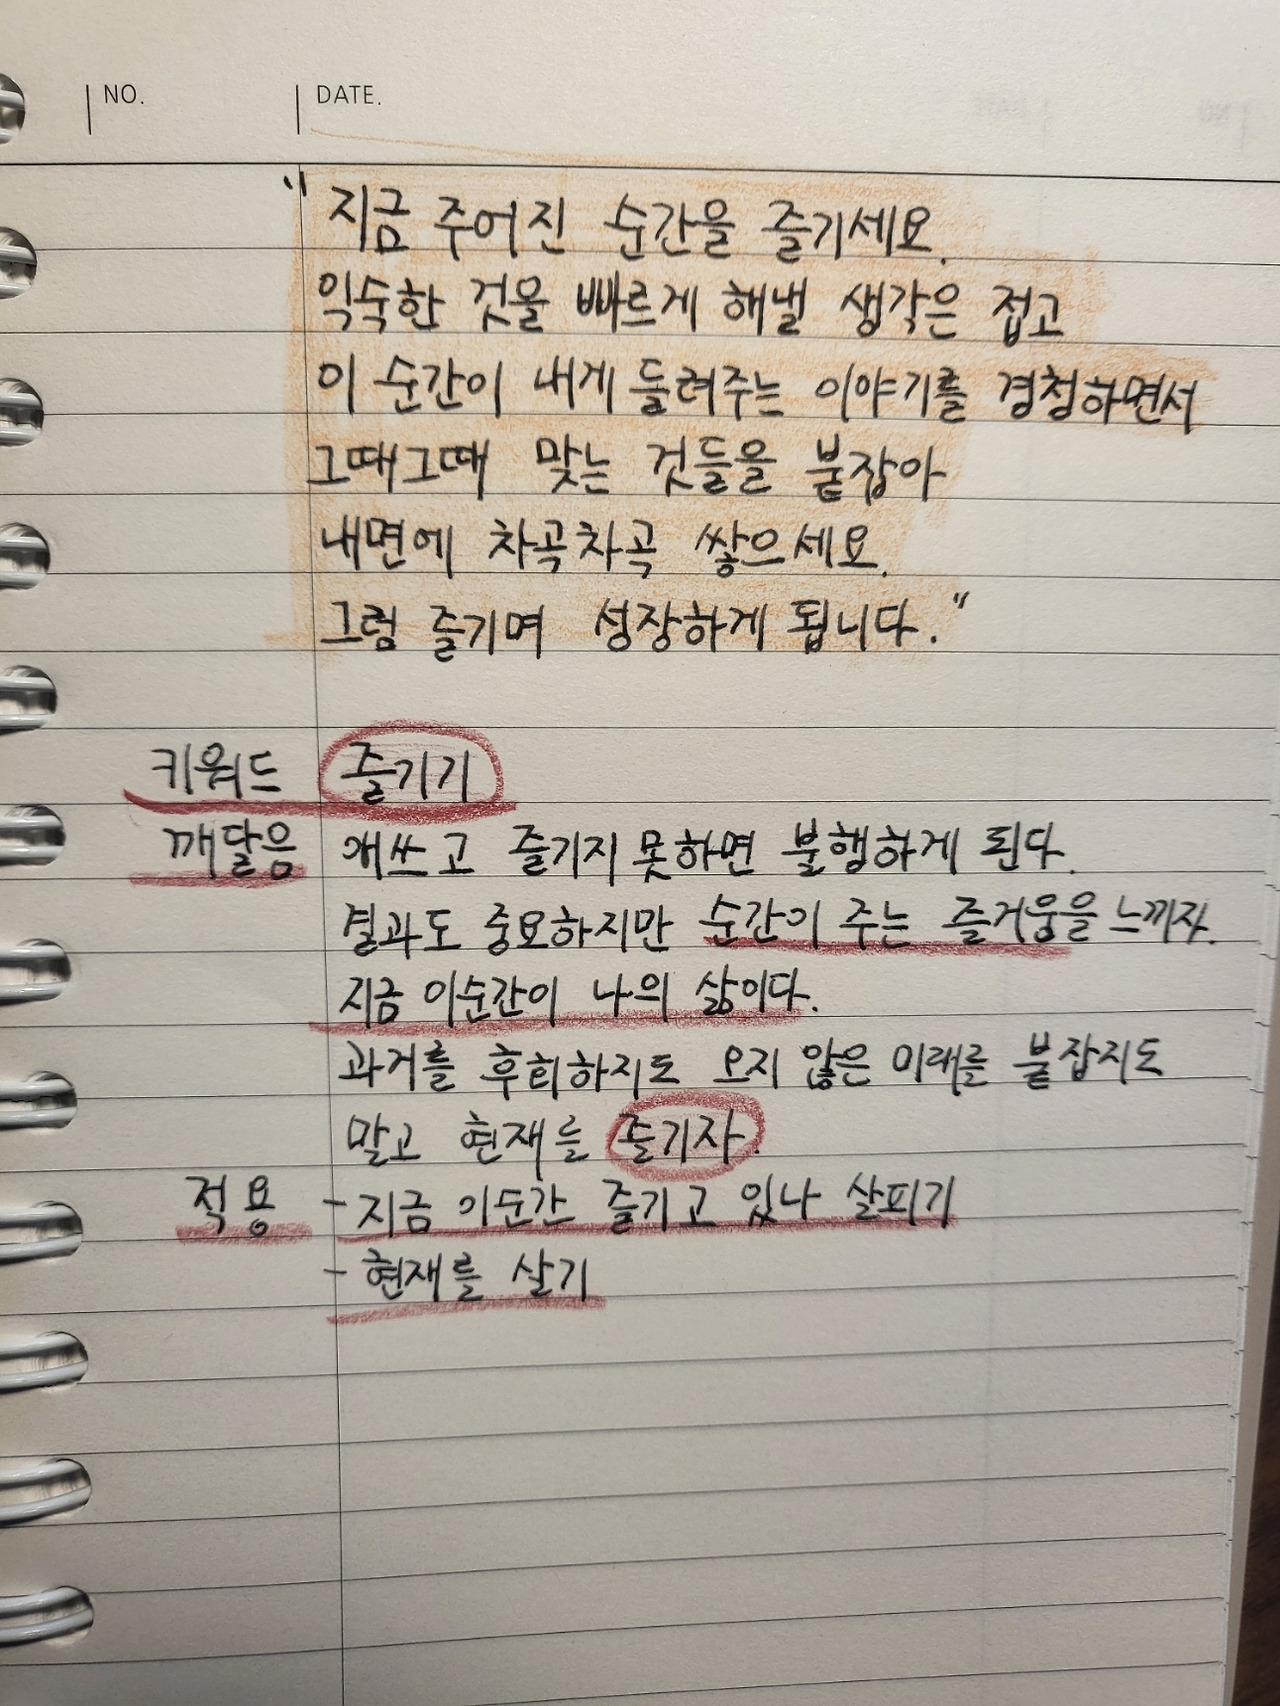 NO.
DATE.
"지금 주어진 순간을 즐기세요.
익숙한 것을 빠르게 해낼 생각은 접고
이 순간이 내게 들려주는 이야기를 경청하면서
그때그때 맞는 것들을 붙잡아
내면에 차곡차곡 쌓으세요.
그럼 즐기며 성장하게 됩니다."
키워드 즐기기
깨달음 애쓰고 즐기지 못하면 불행하게 된다.
결과도 중요하지만 순간이 주는 즐거움을 느끼자.
지금 이순간이 나의 삶이다.
과거를 후회하지도 오지 않은 미래를 붙잡지도
말고 현재를 즐기자.
적용 - 지금 이순간 즐기고 있나 살피기
- 현재를 살기